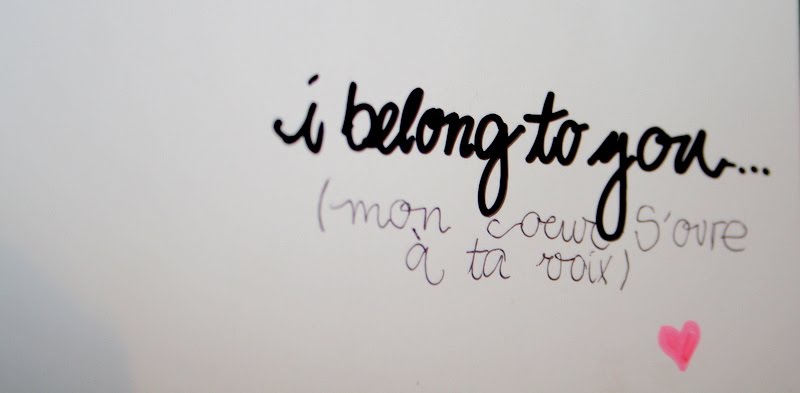 i belong to you...
(mon coeur s'ouvre
à ta voix)